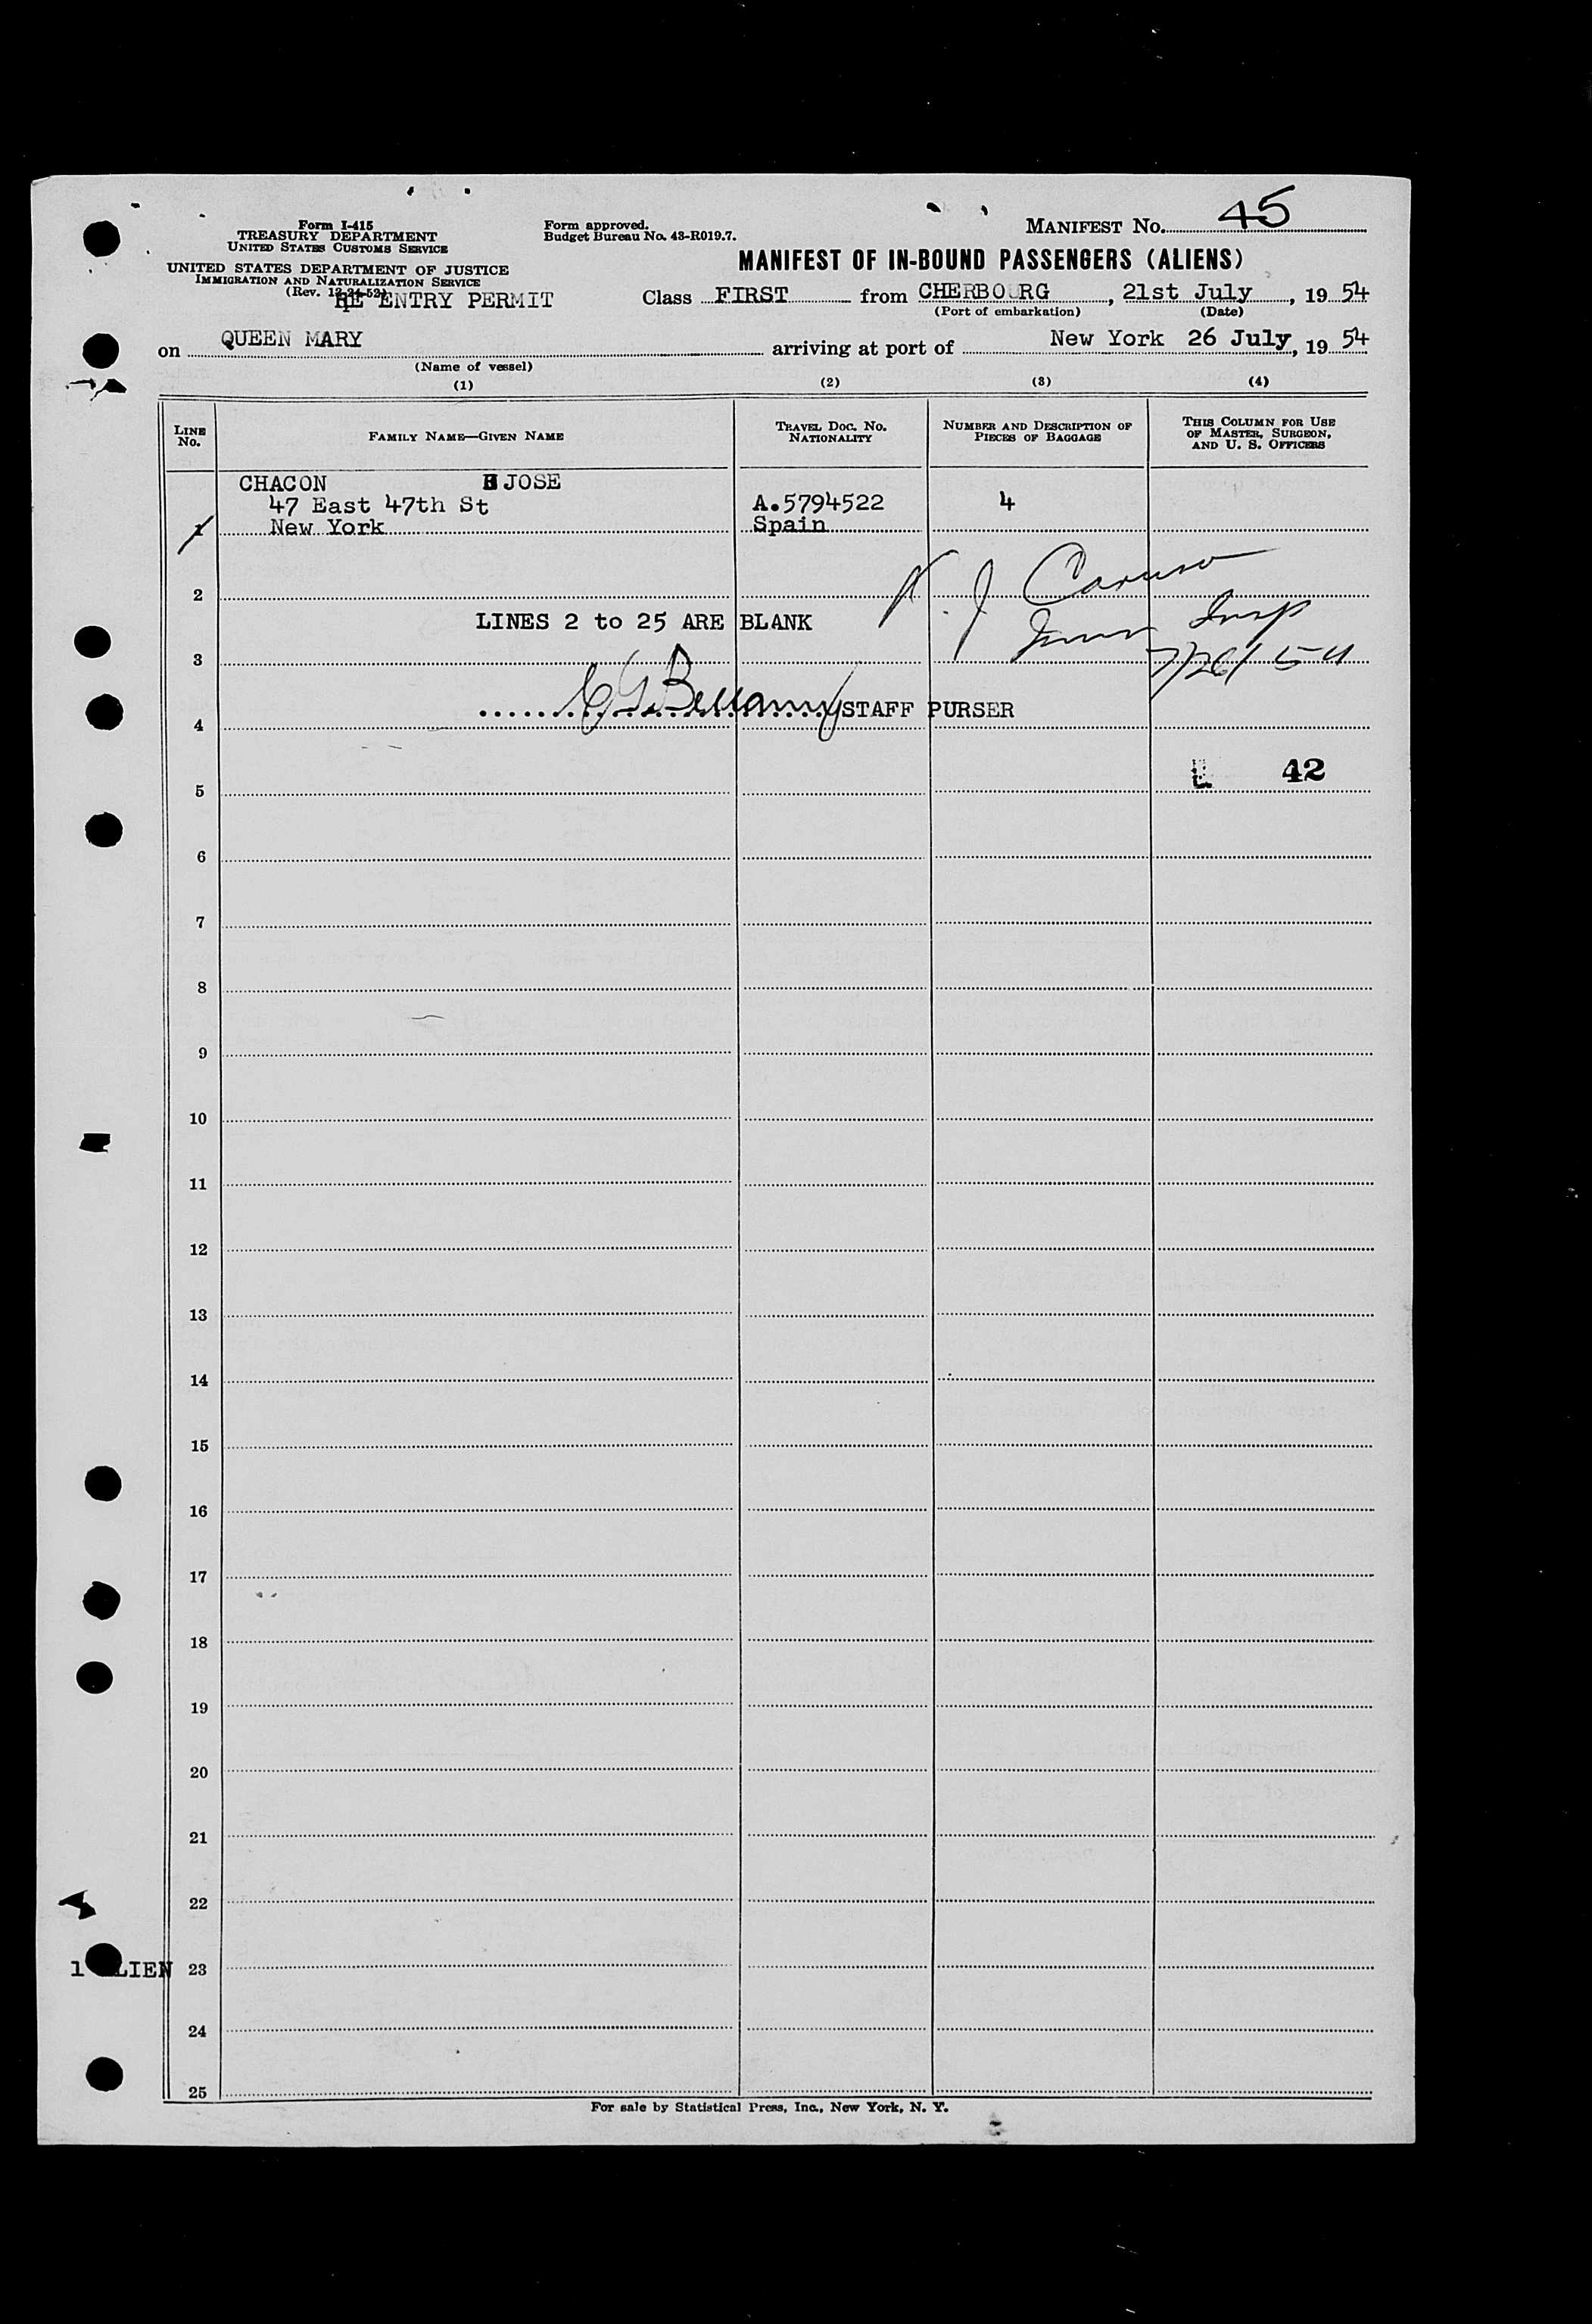 MANIFEST NO. 45
Form I-415
TREASURY DEPARTMENT
UNITED STATES CUSTOMS SERVICE
Form approved.
Budget Bureau No. 43-R019.7.
UNITED STATES DEPARTMENT OF JUSTICE
IMMIGRATION AND NATURALIZATION SERVICE
(Rev. 12-24-52)
MANIFEST OF IN-BOUND PASSENGERS (ALIENS)
RE ENTRY PERMIT Class FIRST from CHERBOURG, 21st July, 1954
(Port of embarkation) (Date)
on QUEEN MARY arriving at port of New York 26 July, 1954
(Name of vessel)
(1) (2) (3) (4)
LINE No. FAMILY NAME—GIVEN NAME TRAVEL DOC. NO. NATIONALITY NUMBER AND DESCRIPTION OF PIECES OF BAGGAGE THIS COLUMN FOR USE OF MASTER, SURGEON, AND U. S. OFFICERS
CHACON JOSE
47 East 47th St A.5794522 4
1 New York Spain
J Caruso
2
Imm Insp
LINES 2 to 25 ARE BLANK
3 7/26/54
C G Bellamy STAFF PURSER
4
L 42
5
6
7
8
9
10
11
12
13
14
15
16
17
18
19
20
21
22
1 ALIEN 23
24
25
For sale by Statistical Press, Inc., New York, N. Y.